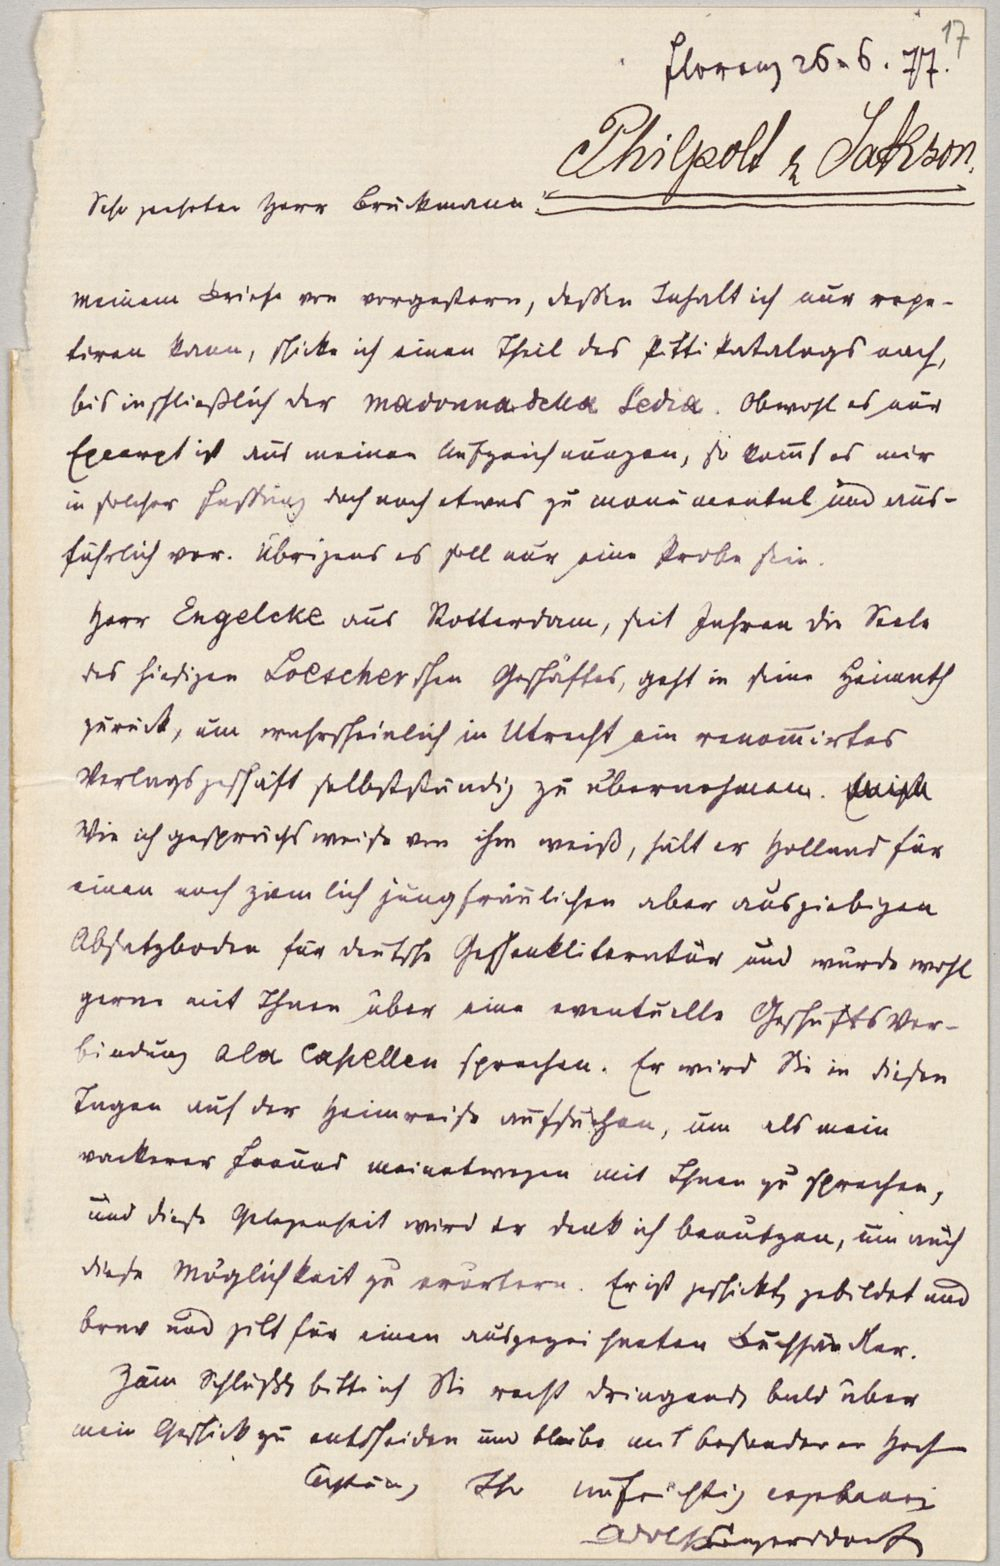 17
Florenz 26.6.77.
Philpolt & Jakson.
Sehr geehrter Herr Bruckmann!
meinem Briefe von vorgestern, deßen Inhalt ich nur repe-
tiren kann, schicke ich einen Theil des Pitti Katalogs nach,
bis inschließlich der Madonna della Sedia. Obwohl es nur
Excerpt ist aus meinen Aufzeichnungen, so kom̅t es mir
in solcher Faßung doch noch etwas zu monumental und aus-
führlich vor. Übrigens es soll nur eine Probe sein.
Herr Engelcke aus Rotterdam, seit Jahren die Seele
des hiesigen Loescherschen Geschäftes, geht in seine Heimath
zurück, um wahrscheinlich in Utrecht ein renom̅irtes
Verlagsgeschäft selbstständig zu übernehmen.
Wie ich gesprächsweise von ihm weiß, hält er Holland für
einen noch ziemlich jungfräulichen aber ausgiebigen
Absatzboden für deutsche Geschenkliteratur und würde wohl
gerne mit Ihnen über eine eventuelle Geschäftsver-
bindung ala Capellen sprechen. Er wird Sie in diesen
Tagen auf der Heimreise aufsuchen, um als mein
wackerer Freund meinetwegen mit Ihnen zu sprechen,
und diese Gelegenheit wird er denk ich benutzen, um auch
diese Möglichkeit zu erörtern. Er ist geschickt, gebildet und
brav und gilt für einen ausgezeichneten Buchhändler.
Zum Schluße bitte ich Sie recht dringend, bald über
mein Geschick zu entscheiden und bleibe mit besonderer Hoch-
achtung Ihr aufrichtig ergebener
Adolf Bayersdorfer